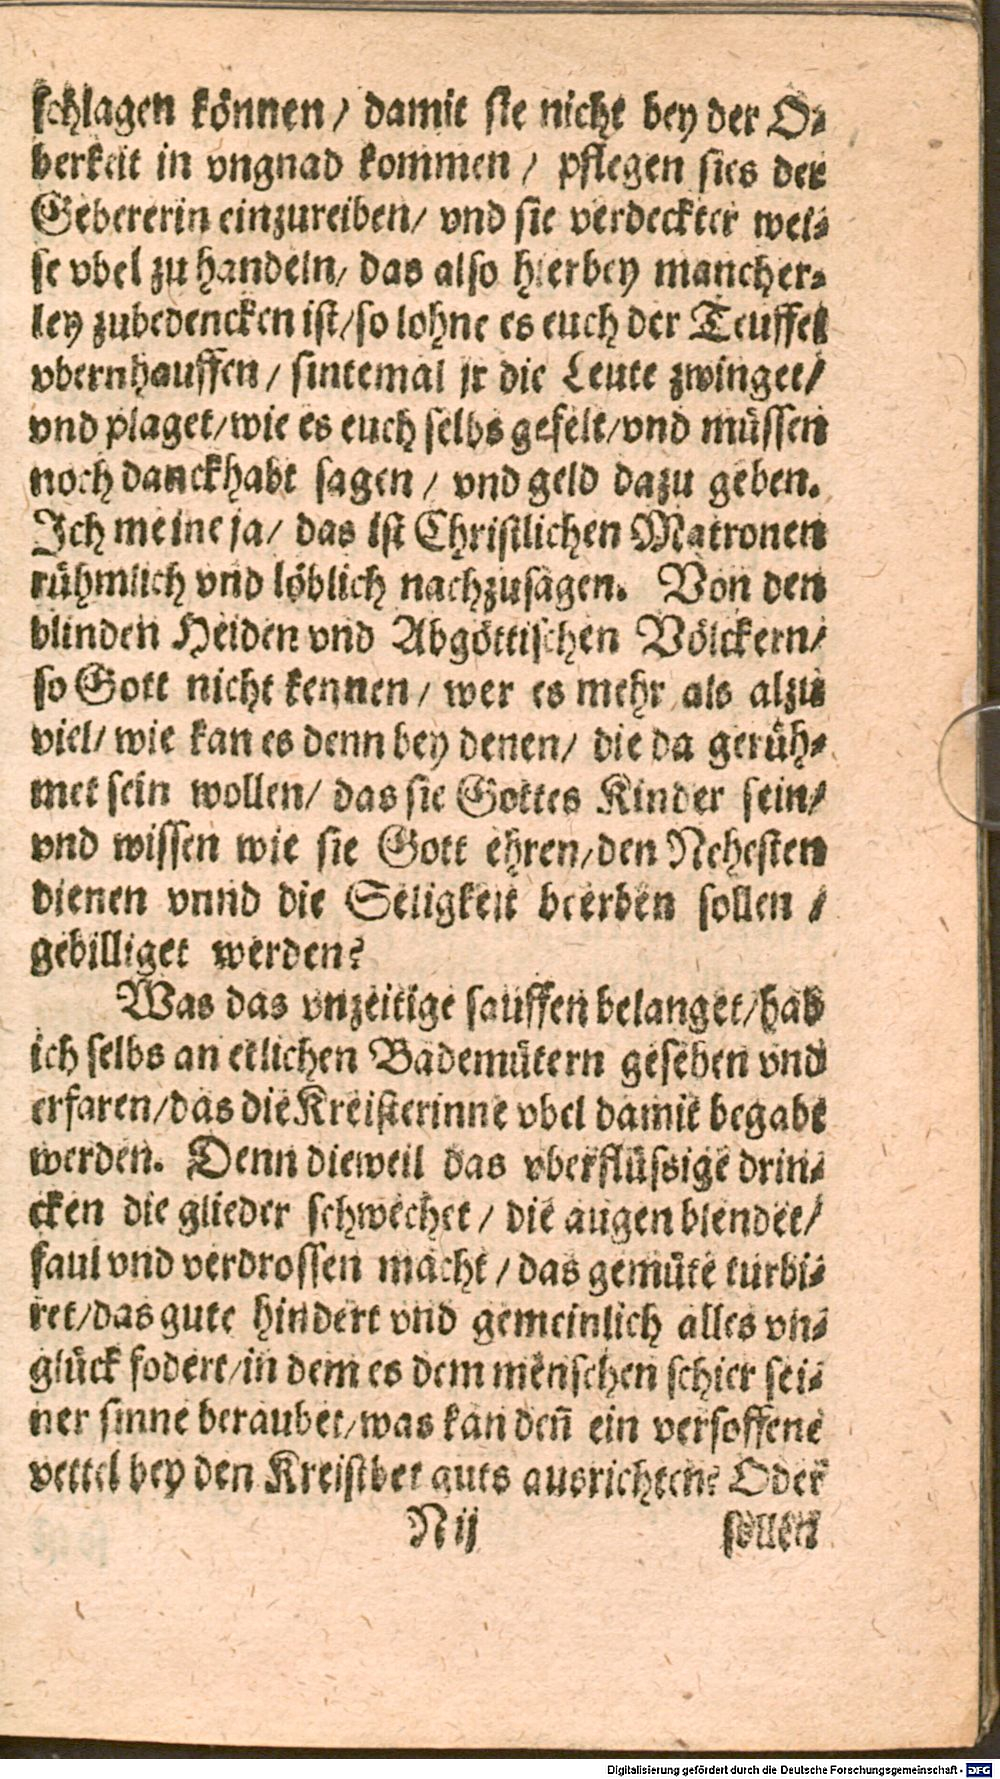 schlagen können / damit sie nicht bey der O-
berkeit in vngnad kommen / pflegen sies der
Gebererin einzureiben / vnd sie verdeckter wei-
se vbel zu handeln / das also hierbey mancher-
ley zubedencken ist / so lohne es euch der Teuffel
vbernhauffen / sintemal jr die Leute zwinget /
vnd plaget / wie es euch selbs gefelt / vnd müssen
noch danckhabt sagen / vnd geld dazu geben.
Ich meine ja / das ist Christlichen Matronen
rühmlich vnd löblich nachzusagen. Von den
blinden Heiden vnd Abgöttischen Völckern /
so Gott nicht kennen / wer es mehr als alzu
viel / wie kan es denn bey denen / die da gerüh-
met sein wollen / das sie Gottes Kinder sein /
vnd wissen wie sie Gott ehren / den Nehesten
dienen vnnd die Seligkeit beerben sollen /
gebilliget werden?
Was das vnzeitige sauffen belanget / hab
ich selbs an etlichen Bademütern gesehen vnd
erfaren / das die Kreisterinne vbel damit begabt
werden. Denn dieweil das vberflüssige drin-
cken die glieder schwechet / die augen blendet /
faul vnd verdrossen macht / das gemüte turbi-
ret / das gute hindert vnd gemeinlich alles vn-
glück fodert / in dem es dem menschen schier sei-
ner sinne beraubet / was kan den̄ ein versoffene
vettel bey den Kreistbet guts ausrichten? Oder
N ij sollen
Digitalisierung gefördert durch die Deutsche Forschungsgemeinschaft - DFG